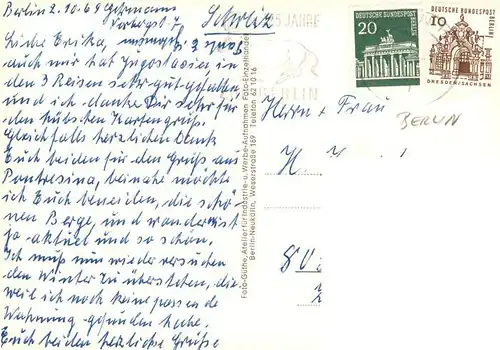 Berlin 2. 10. 69
Schweiz
Liebe Erika,
auch mir hat Jugoslawien in
den 3 Reisen sehr gut gefallen
und ich danke Dir sehr für
den hübschen Kartengruß.
Gleichfalls herzlichen Dank
Euch beiden für den Gruß aus
Pontresina, beinahe möchte
ich Euch beneiden, die schö-
nen Berge, und wandern ist
ja aktuell und so schön.
Ich muß nun wieder versuchen
den Winter zu überstehen, die
weil ich noch keine passende
Wohnung gefunden habe.
Euch beiden herzliche Grüße
Foto-Güthe, Atelier für Industrie- u. Werbe-Aufnahmen Foto-Einzelhandel
Berlin-Neukölln, Weserstraße 189 Telefon 62 19 16
25 JAHRE
BERLIN
DEUTSCHE BUNDESPOST
BERLIN
20
DEUTSCHE BUNDESPOST
BERLIN
10
DRESDEN/SACHSEN
BERLIN
Herrn + Frau
H.